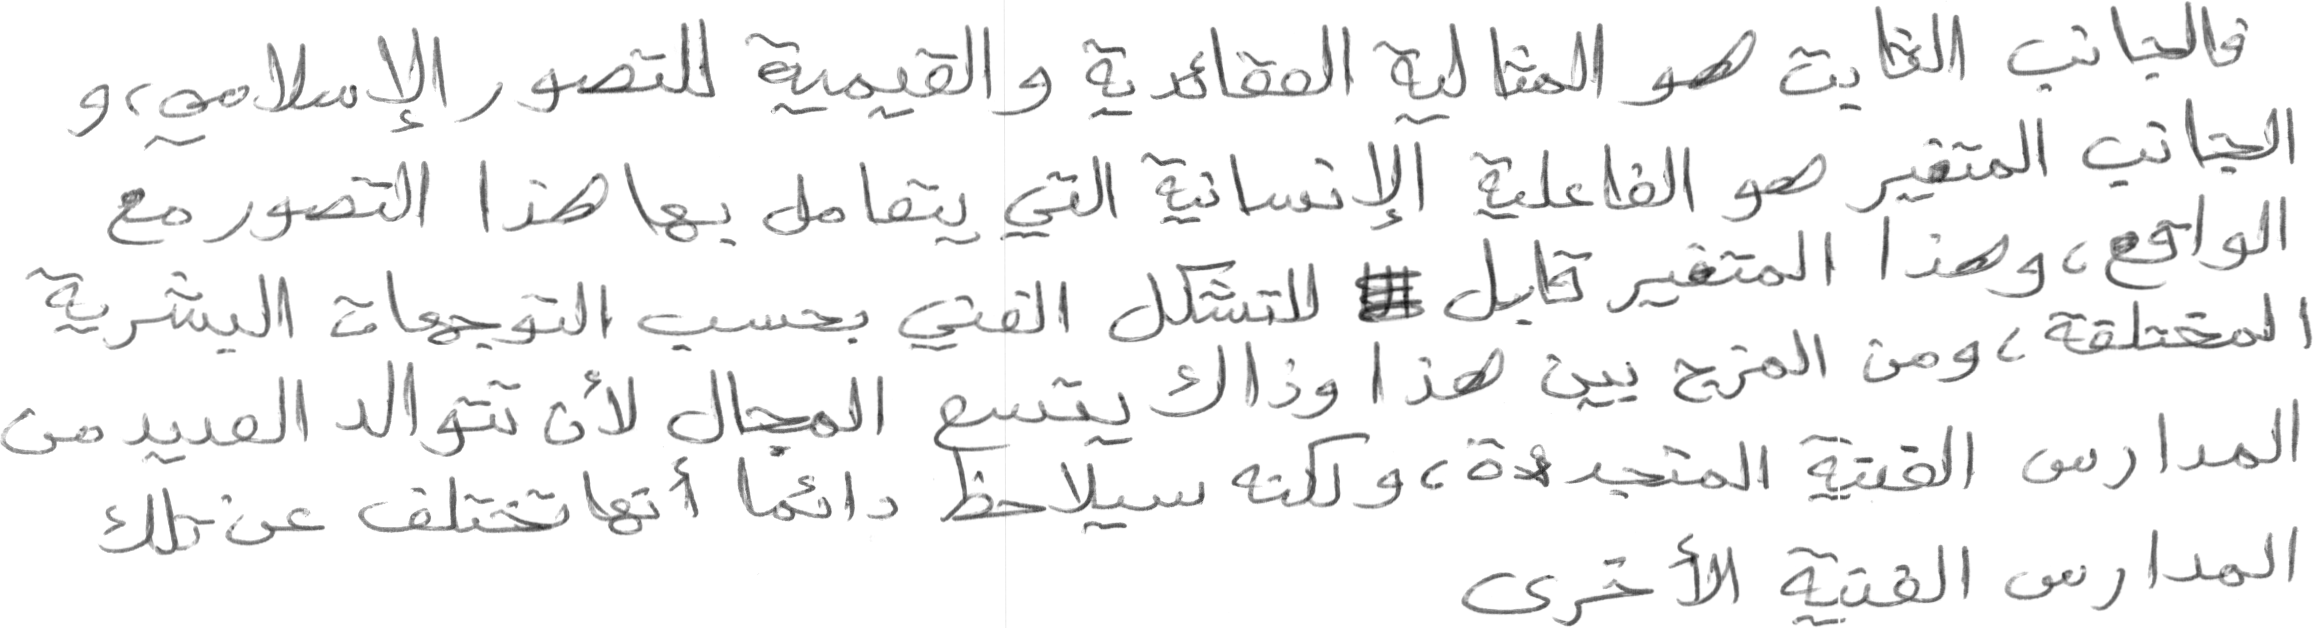 فالجانب الثابت هو المثالية العقائدية والقيمية للتصور الإسلامي، و
الجانب المتغير هو الفاعلية الإنسانية التي يتعامل بها هذا التصور مع
الواقع، وهذا المتغير قابل للتشكل الفني بحسب التوجهات البشرية
المختلفة، ومن المزج بين هذا وذاك يتسع المجال لأن تتوالد العديد من
المدارس الفنية المتجددة، ولكنه سيلاحظ دائما أنها تختلف عن تلك
المدارس الفنية الأخرى